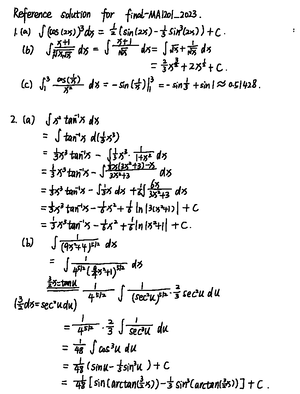 Reference solution for final-MA1201_2023.
1. (a) ∫(cos(2x))³dx = ½(sin(2x) - ⅓sin³(2x)) + C.
(b) ∫ (x+1)/√x dx = ∫ (x+1)/√x dx = ∫ √x + 1/√x dx
= ⅔x^(3/2) + 2x^(1/2) + C.
(c) ∫₁³ cos(1/x)/x² dx = -sin(1/x)|₁³ = -sin⅓ + sin1 ≈ 0.51428.
2. (a) ∫x² tan⁻¹x dx
= ∫ tan⁻¹x d(⅓x³)
= ⅓x³ tan⁻¹x - ∫⅓x³ · 1/(1+x²) dx
= ⅓x³ tan⁻¹x - ∫ dx
= ⅓x³ tan⁻¹x - ∫⅓x dx + ∫ dx
= ⅓x³ tan⁻¹x - ⅙x² + ⅙ln|3(x²+1)| + C
= ⅓x³ tan⁻¹x - ⅙x² + ⅙ln|x²+1| + C.
(b) ∫ 1/(9x²+4)^(5/2) dx
= ∫ 1/(4^(5/2)(9/4x²+1)^(5/2)) dx
(3/2)x = tan u 1/4^(5/2) ∫ 1/(sec²u)^(5/2) · ⅔ sec²u du
(3/2 dx = sec²u du)
= 1/4^(5/2) · ⅔ ∫ 1/sec³u du
= 1/48 ∫ cos³u du
= 1/48 (sin u - ⅓sin³u) + C
= 1/48 [sin(arctan(3/2x)) - ⅓sin³(arctan(3/2x))] + C.